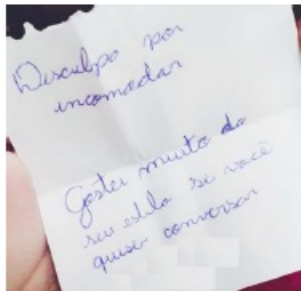 Desculpa por
incomodar
Gostei muito do
seu estilo se você
quiser conversar